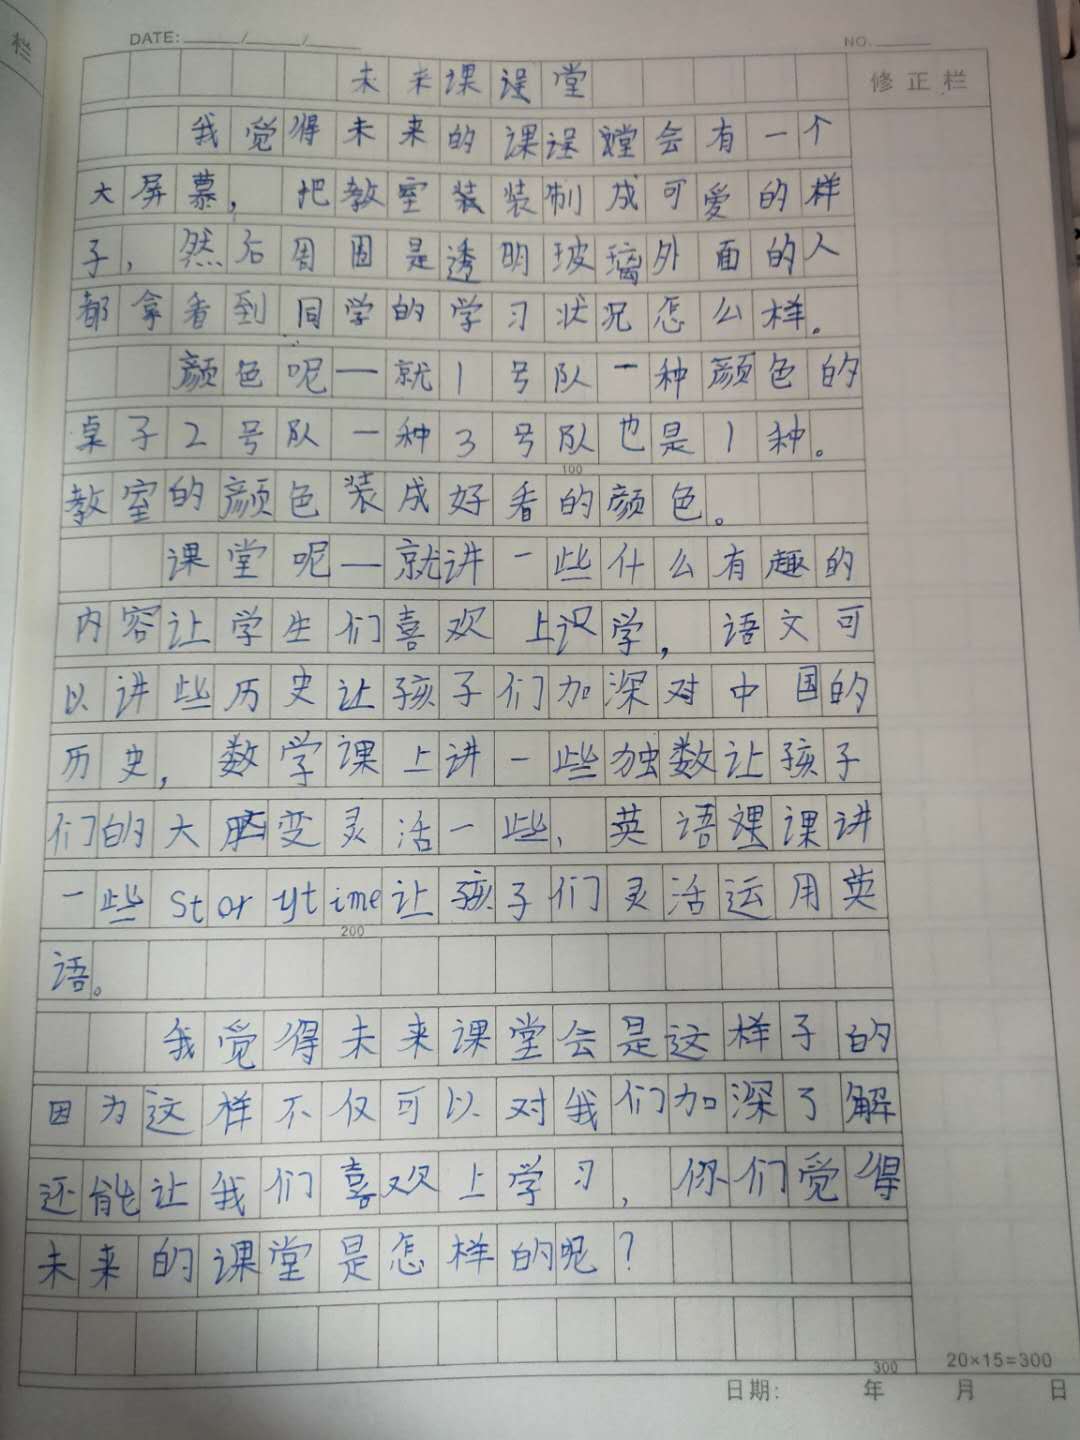 栏
DATE: / /
NO.
未来课误堂
修正栏
我觉得未来的课误堂会有一个
大屏慕，把教室装装制成可爱的样
子，然后周围是透明玻璃外面的人
都拿看到同学的学习状况怎么样。
颜色呢一就1号队一种颜色的
桌子2号队一种3号队也是1种。
100
教室的颜色装成好看的颜色。
课堂呢一就讲一些什么有趣的
内容让学生们喜欢上识学，语文可
以讲些历史让孩子们加深对中国的
历史，数学课上讲一些独数让孩子
们的大脑变灵活一些，英语课课讲
一些Storytime让孩子们灵活运用英
200
语。
我觉得未来课堂会是这样子的
因为这样不仅可以对我们加深了解
还能让我们喜欢上学习，你们觉得
未来的课堂是怎样的呢？
300
20×15=300
日期： 年 月 日